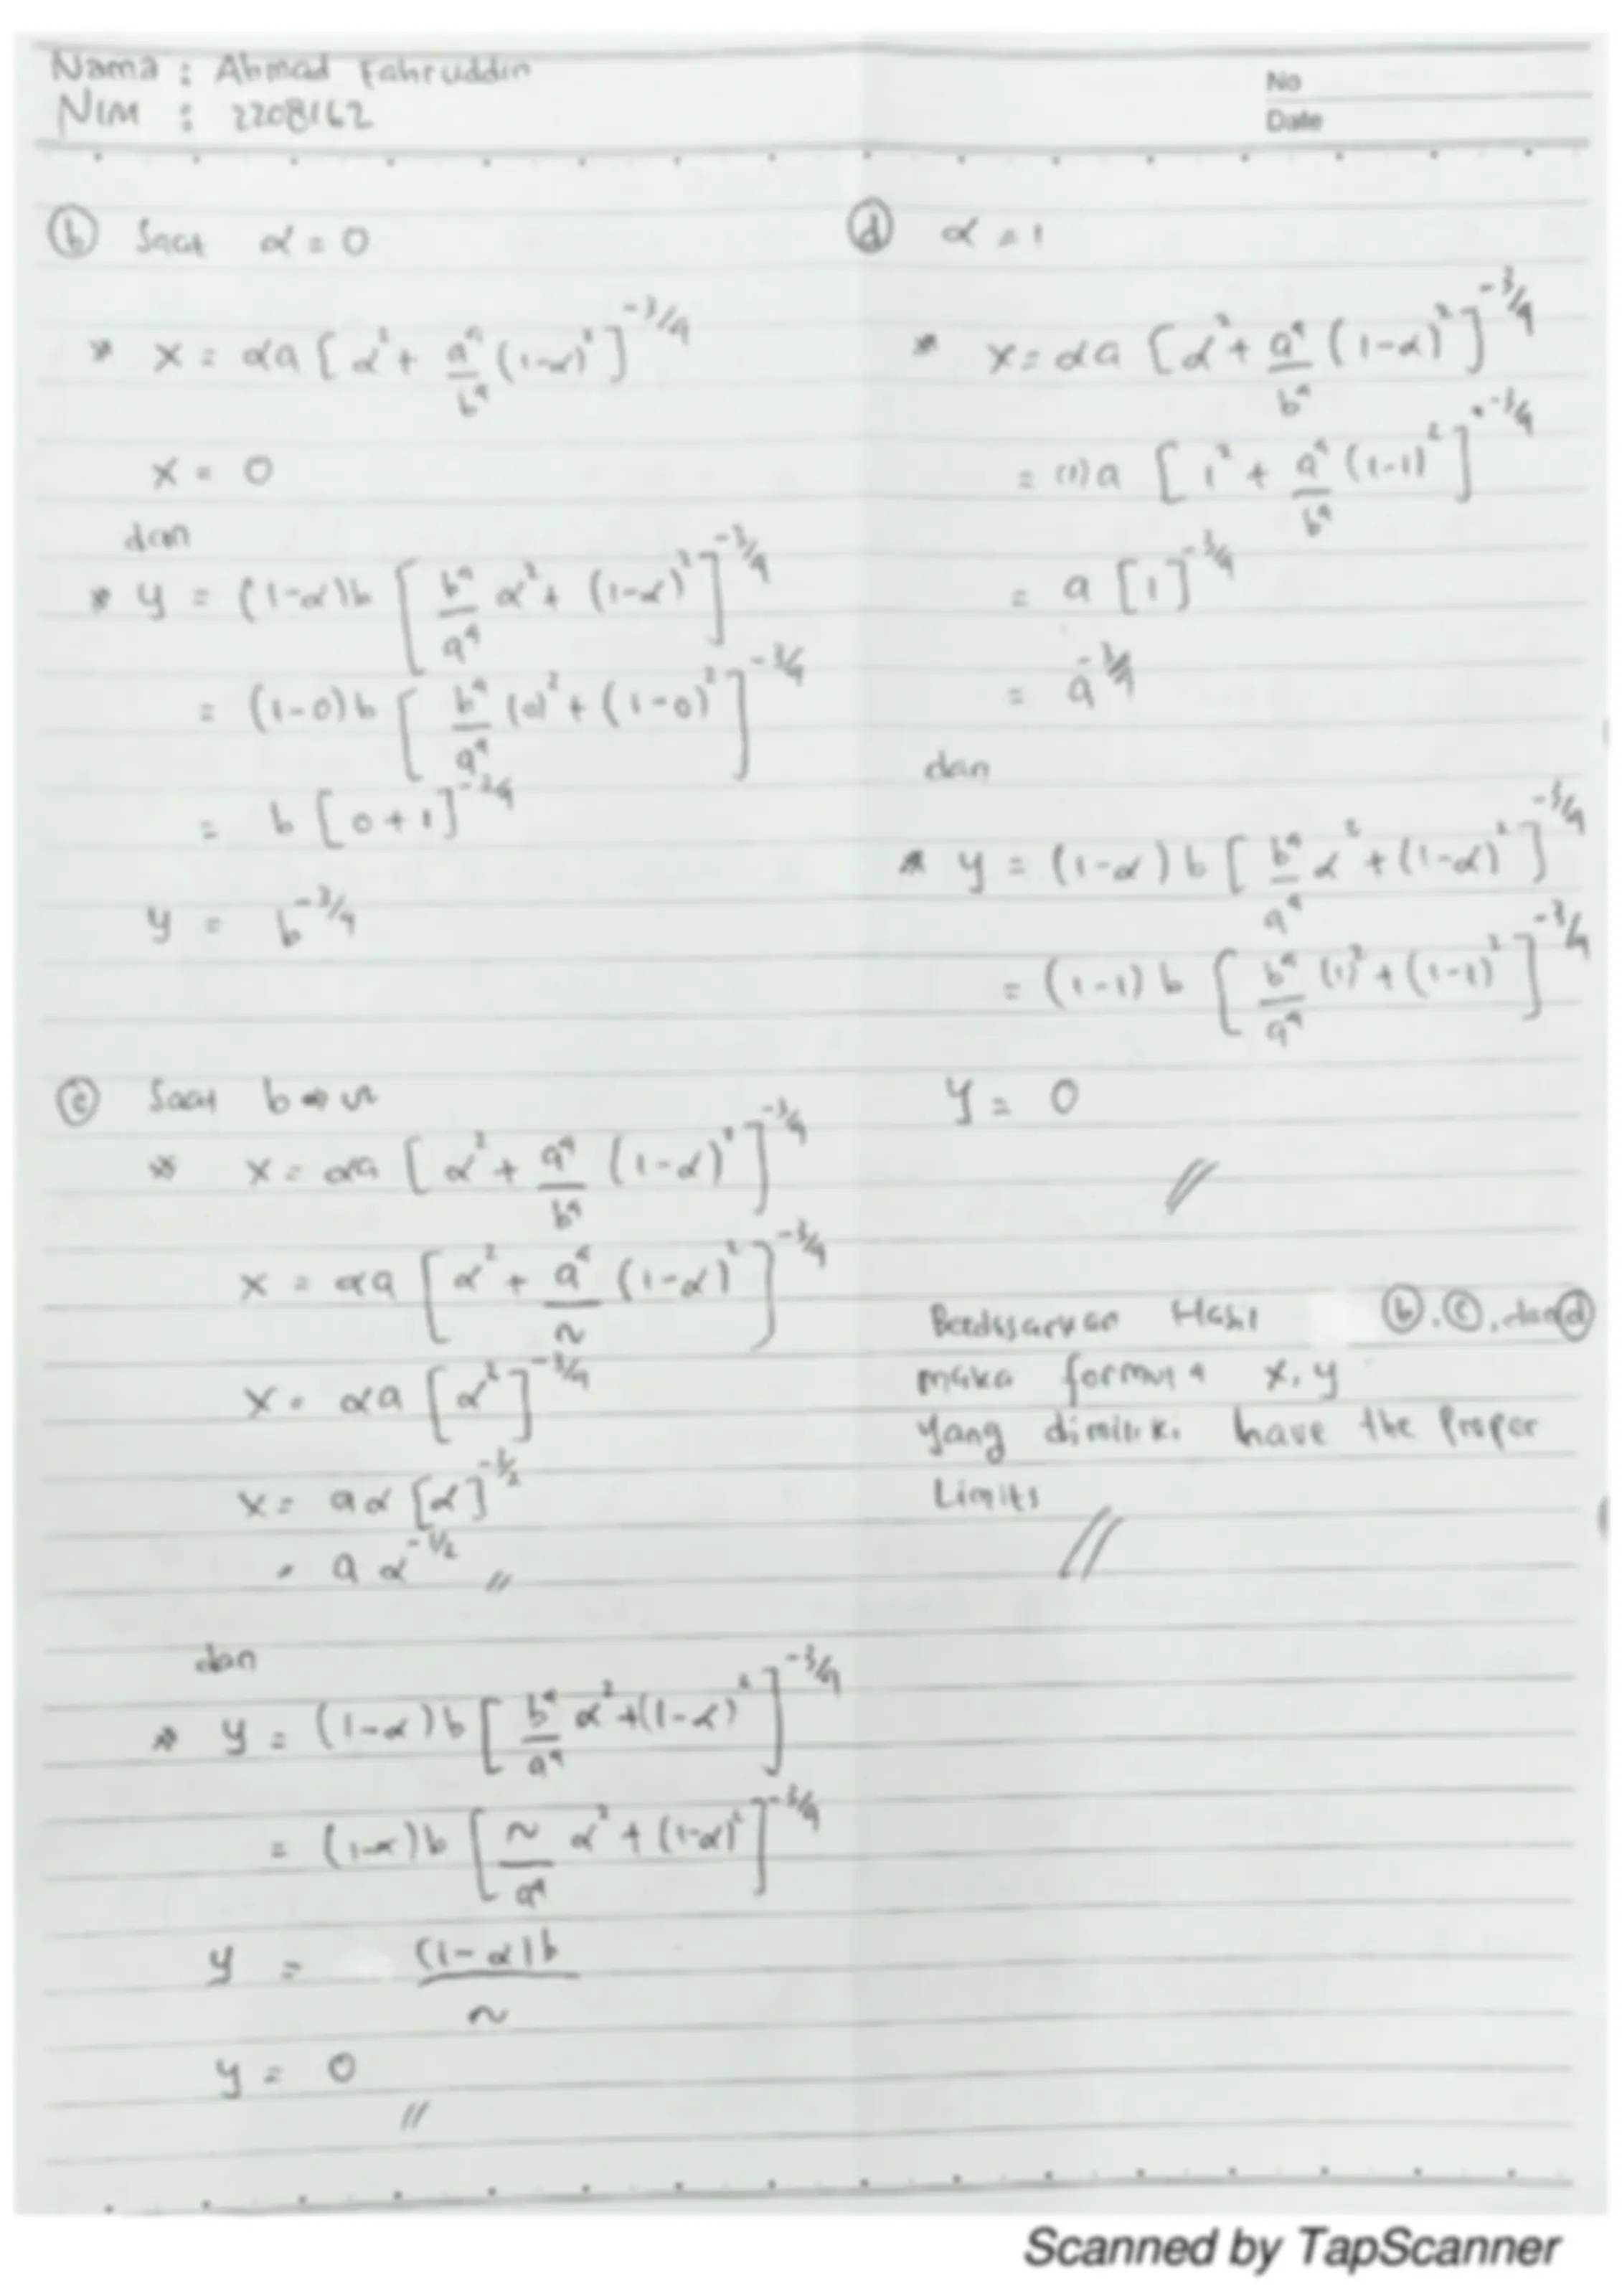 Nama : Ahmad Fahruddin
NIM : 2208162
No
Date
(b) Saat α = 0
* x = αa [α² + a⁴/b⁴ (1-α)²]^(-3/4)
x = 0
dan
* y = (1-α)b [b⁴/a⁴ α² + (1-α)²]^(-3/4)
= (1-0)b [b⁴/a⁴ (0)² + (1-0)²]^(-3/4)
= b [0+1]^(-3/4)
y = b^(-3/4)
(c) Saat b → ~
* x = αa [α² + a⁴/b⁴ (1-α)²]^(-3/4)
x = αa [α² + a⁴/~ (1-α)²]^(-3/4)
x = αa [α²]^(-3/4)
x = aα [α]^(-3/2)
= a α^(-1/2) //
dan
* y = (1-α)b [b⁴/a⁴ α² + (1-α)²]^(-3/4)
= (1-α)b [~/a⁴ α² + (1-α)²]^(-3/4)
y = (1-α)b/~
y = 0
//
(d) α = 1
* x = αa [α² + a⁴/b⁴ (1-α)²]^(-3/4)
= (1)a [1² + a⁴/b⁴ (1-1)²]^(-3/4)
= a [1]^(-3/4)
= a^(-3/4)
dan
* y = (1-α)b [b⁴/a⁴ α² + (1-α)²]^(-3/4)
= (1-1)b [b⁴/a⁴ (1)² + (1-1)²]^(-3/4)
y = 0
//
Berdasarkan Hasil (b), (c), dan (d)
maka formula x, y
yang dimiliki have the Proper
Limits
//
Scanned by TapScanner